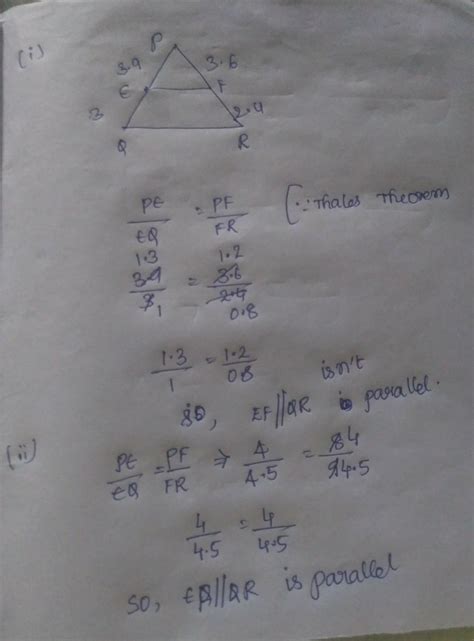 (i)
P
3.9 3.6
E F
3 2.4
Q R
PE/EQ = PF/FR (∵ Thales Theorem
1.3 1.2
3.9/3 = 3.6/2.4
1 0.8
1.3/1 = 1.2/08
isn't
so, EF||QR is parallel.
(ii) PE/EQ = PF/FR ⇒ 4/4.5 = 84/94.5
4/4.5 = 4/4.5
so, EQ||QR is parallel